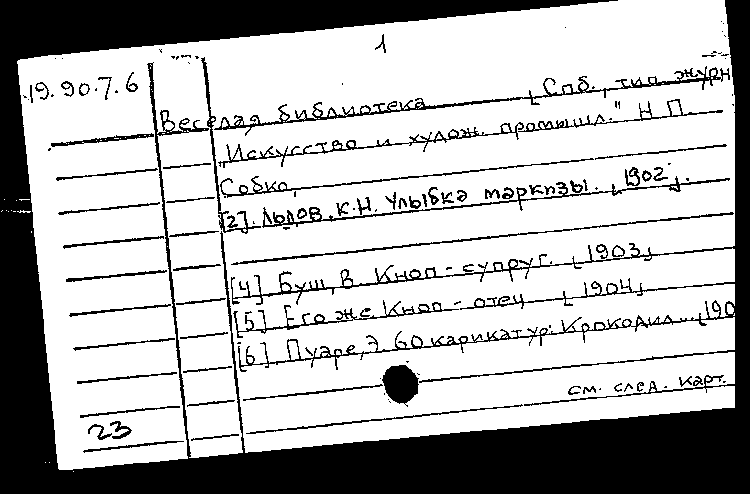 1
19.90.7.6
Веселая библиотека [Спб., тип. журн
„Искусство и худож. промышл." Н П
Собко,
[2]. Льдов, К.Н. Улыбка маркизы. [1902].
[4] Буш, В Кноп - супруг. [1903]
[5] Его же Кноп - отец [1904]
[6] Пуаре, Э. 60 карикатур: Крокодил... [190
см. след. карт.
23